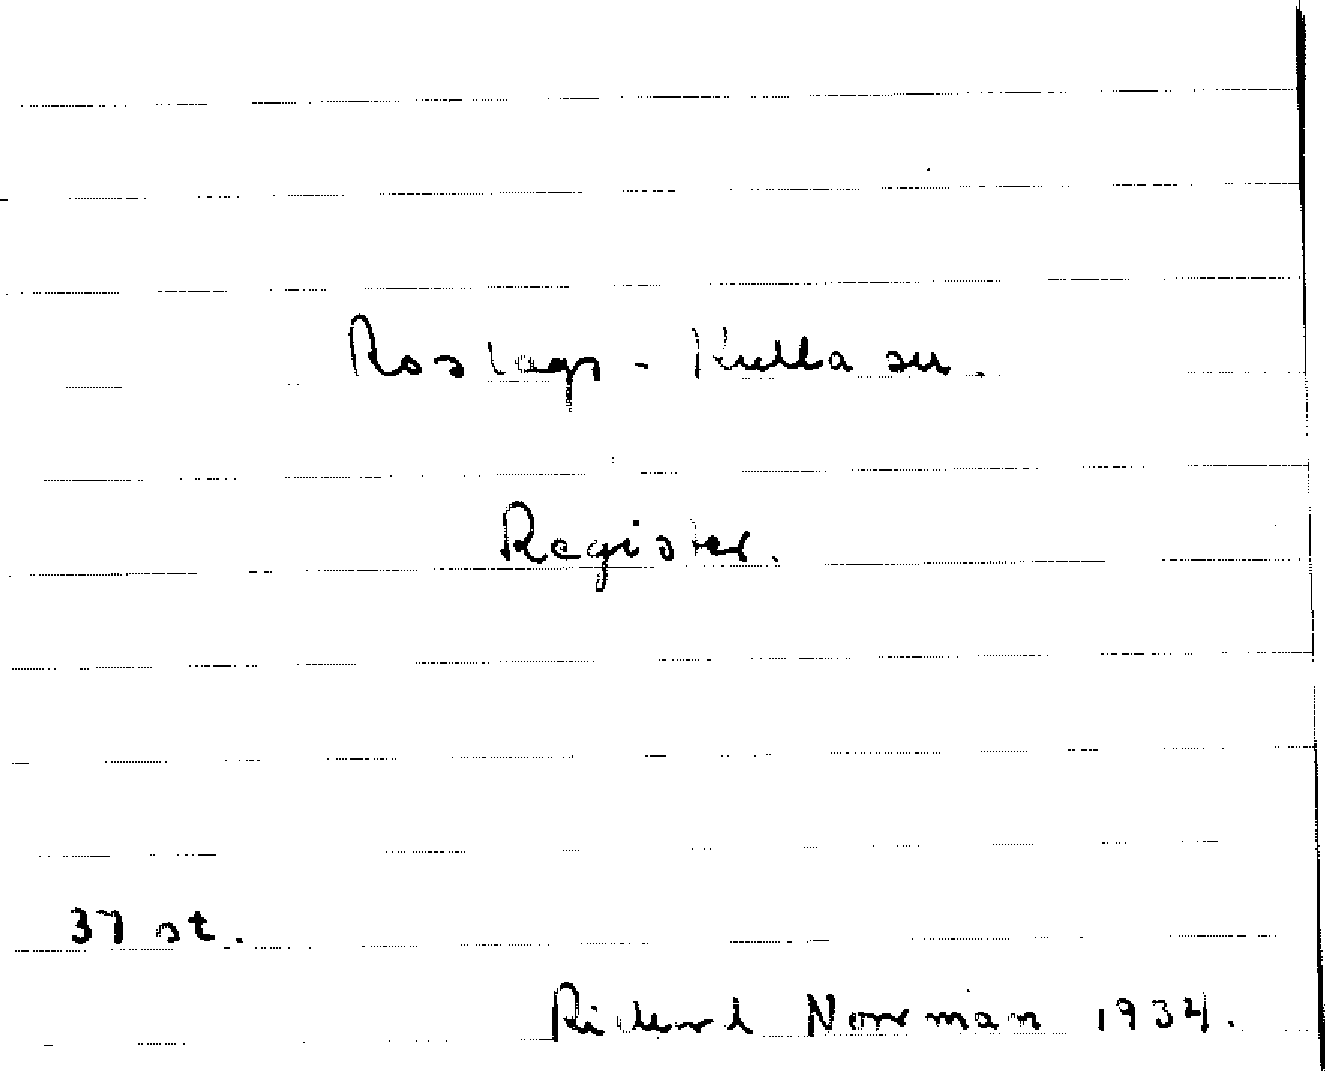 Roslags-Kulla sn.
Register.
37 st.
Richard Norrman 1934.